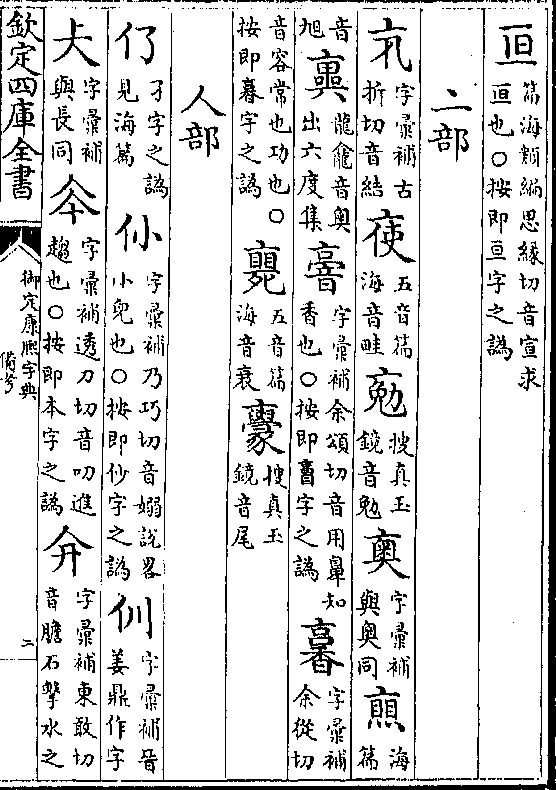 亘 篇海類編思緣切音宣求
亘也○按即亘字之譌
亠部
字彙補古
折切音結 五音篇
海音畦 搜真玉
鏡音勉 字彙補
與奧同 海
篇
音
旭 龍龕音奧
出六度集 字彙補余頌切音用鼻知
香也○按即𦤘字之譌 字彙補
余從切
音容常也功也○
按即𦤘字之譌 五音篇
海音衰 搜真玉
鏡音尾
人部
孑字之譌
見海篇 字彙補乃巧切音嫋說畧
小兒也○按即仯字之譌 字彙補晉
姜鼎作字
字彙補
與長同 字彙補透刀切音叨進
趨也○按即本字之譌 字彙補東敢切
音膽石擊水之
欽定四庫全書
御定康熙字典
備考
二